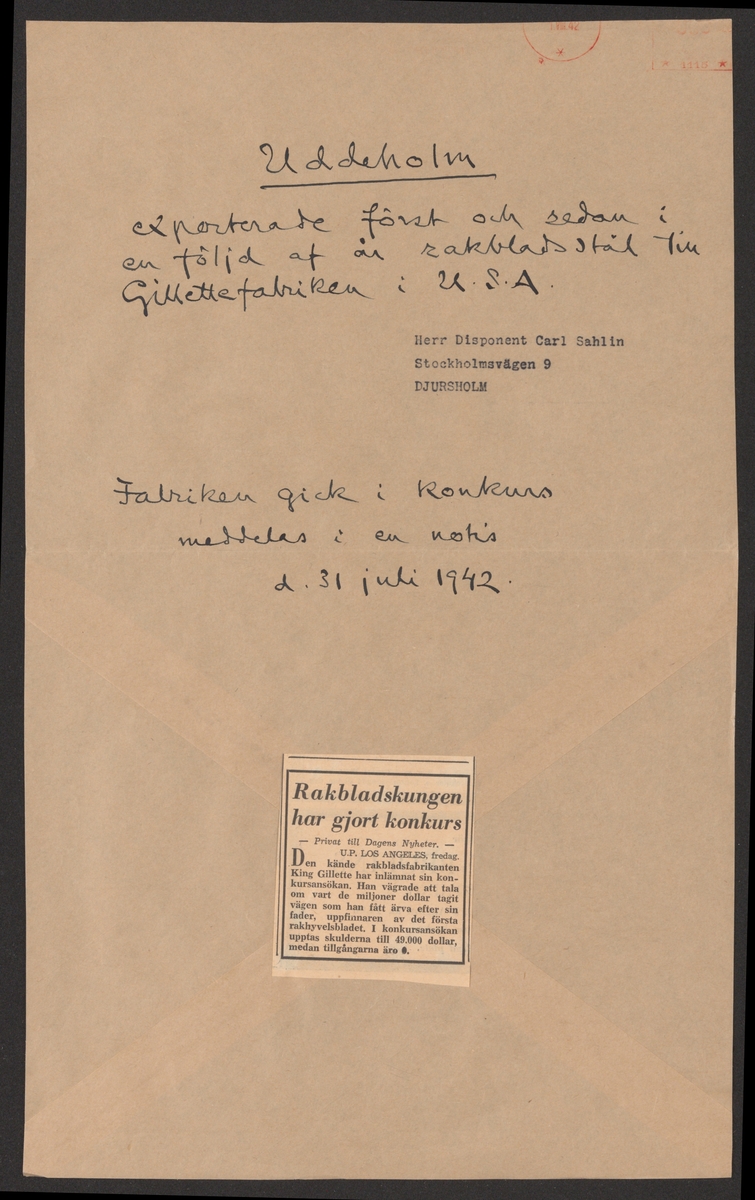 VII.42
* 1115 *
Uddeholm
exporterade först och sedan i
en följd af år rakbladsstål till
Gillettefabriken i U.S.A.
Herr Disponent Carl Sahlin
Stockholmsvägen 9
DJURSHOLM
Fabriken gick i konkurs
meddelas i en notis
d. 31 juli 1942.
Rakbladskungen
har gjort konkurs
— Privat till Dagens Nyheter. —
U.P. LOS ANGELES, fredag.
Den kände rakbladsfabrikanten
King Gillette har inlämnat sin kon-
kursansökan. Han vägrade att tala
om vart de miljoner dollar tagit
vägen som han fått ärva efter sin
fader, uppfinnaren av det första
rakhyvelsbladet. I konkursansökan
upptas skulderna till 49.000 dollar,
medan tillgångarna äro 0.